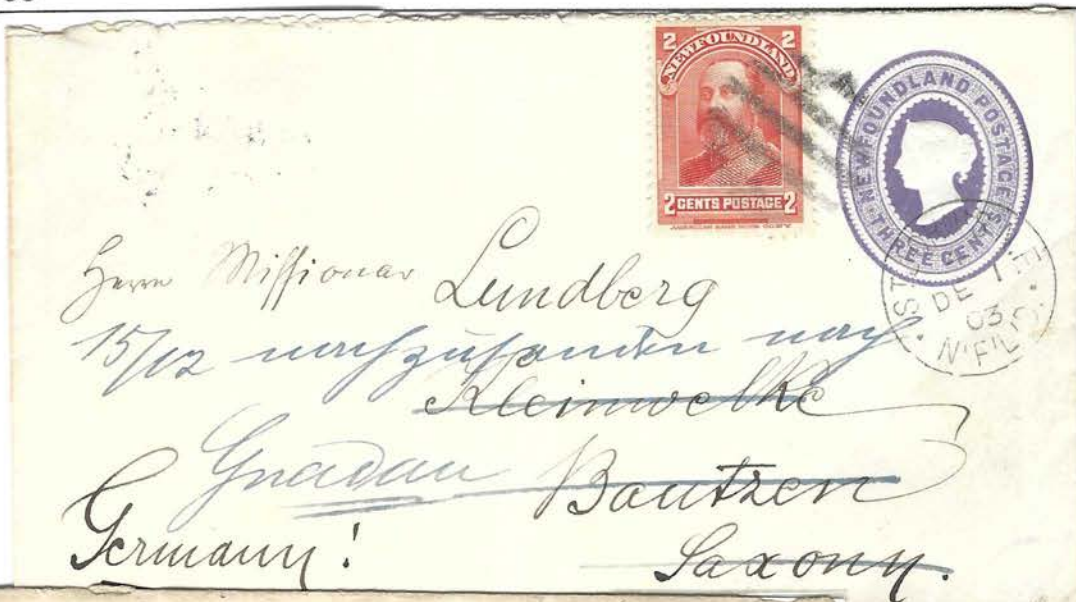 2 NEWFOUNDLAND 2
2 CENTS POSTAGE 2
AMERICAN BANK NOTE CO. N.Y.
NEWFOUNDLAND POSTAGE
THREE CENTS
DE 1
03
N'F'L'D.
Herrn Missionar Lundberg
15/12 nachzusenden nach
Kleinwelke
Gnadau Bautzen
Germany! Saxony.